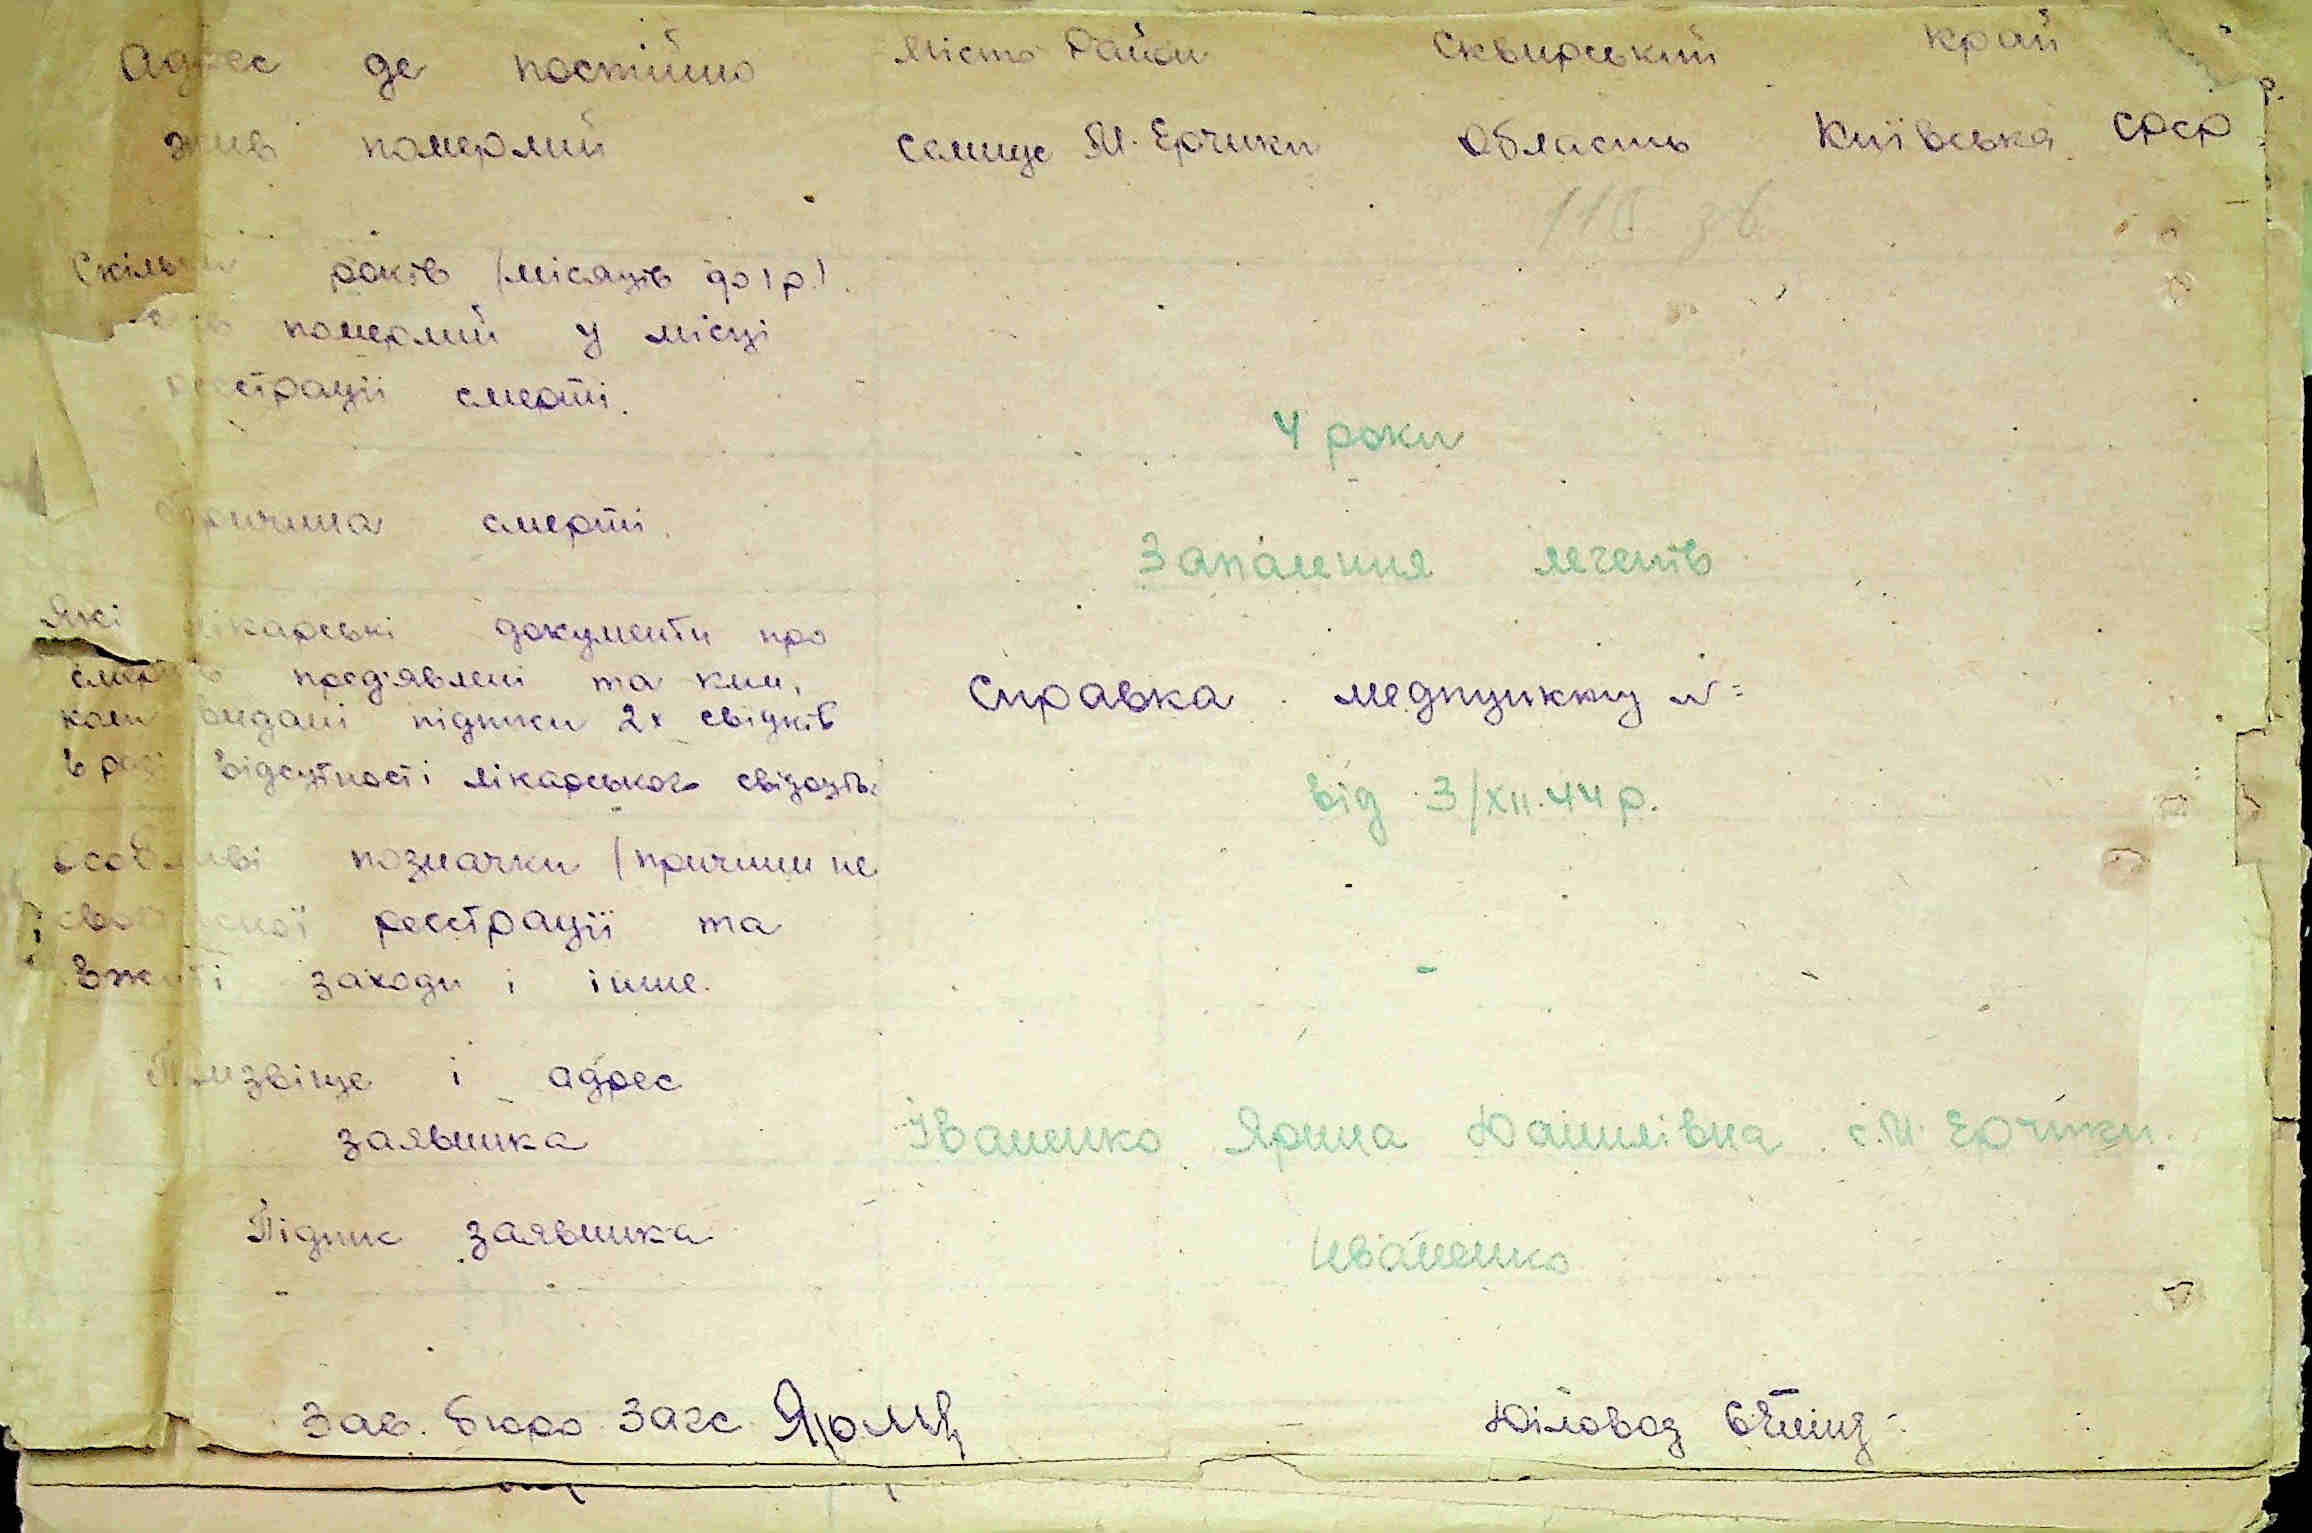 Адрес де постійно Місто Район Сквирський край
жив померлий Селище М. Єрчики Область Київська СРСР
Скільки років /місяців до 1 р./
померлий у місці
реєстрації смерті.
4 роки
Причина смерті.
Запалення легенів
Які лікарські документи про
смерть пред'явлені та ким,
коли видані підписи 2х свідків
в разі відсутності лікарського
Справка медпункту №
від 3/XII.44 р.
Особливі позначки /причини не
своєчасної реєстрації та
вжиті заходи і інше.
-
Призвіще і адрес
заявника
Іваненко Ярина Данилівна с. М. Єрчики.
Підпис заявника
Иваненко
Зав. бюро Загс
Діловод